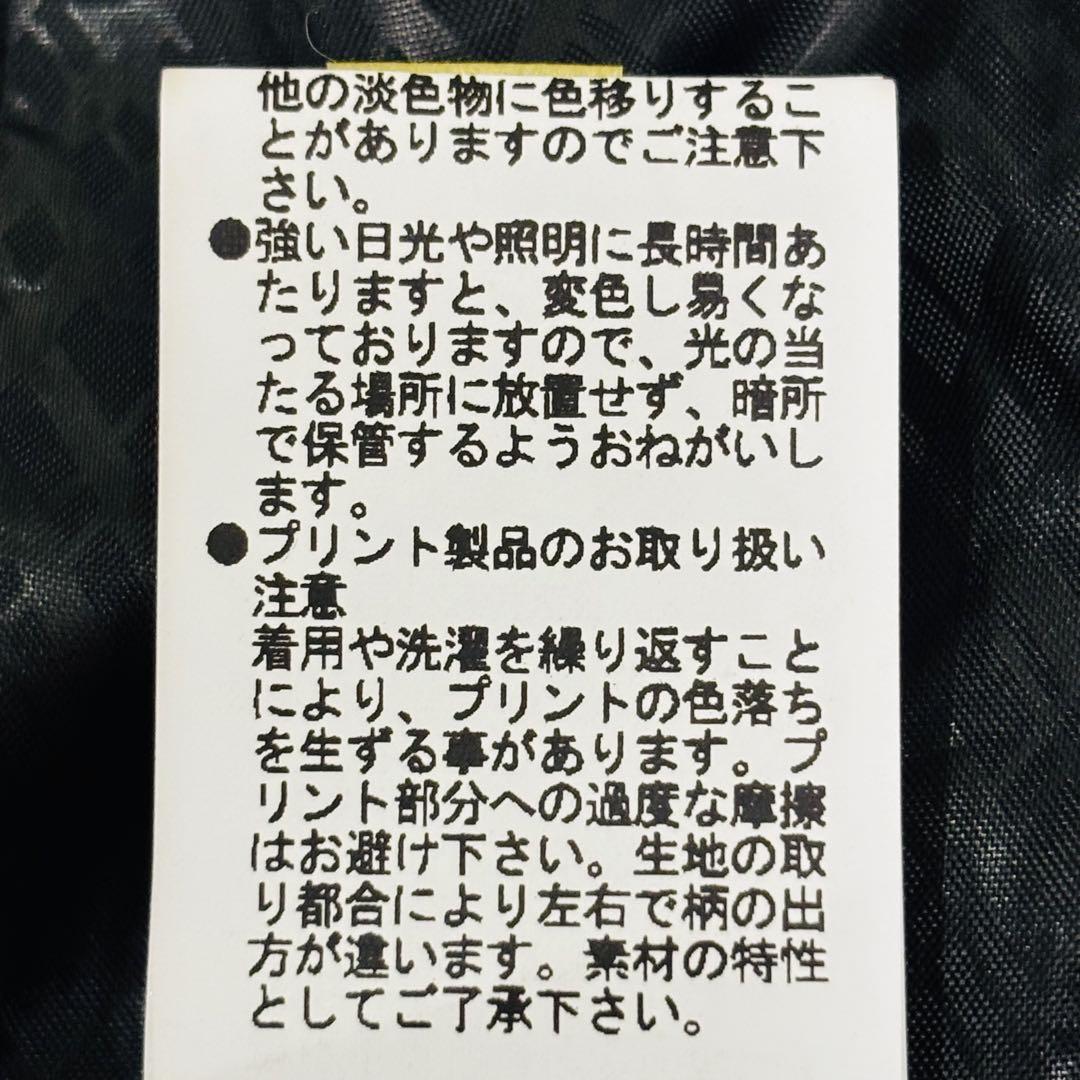 他の淡色物に色移りするこ
とがありますのでご注意下
さい。
●強い日光や照明に長時間あ
たりますと、変色し易くな
っておりますので、光の当
たる場所に放置せず、暗所
で保管するようおねがいし
ます。
●プリント製品のお取り扱い
注意
着用や洗濯を繰り返すこと
により、プリントの色落ち
を生ずる事があります。プ
リント部分への過度な摩擦
はお避け下さい。生地の取
り都合により左右で柄の出
方が違います。素材の特性
としてご了承下さい。